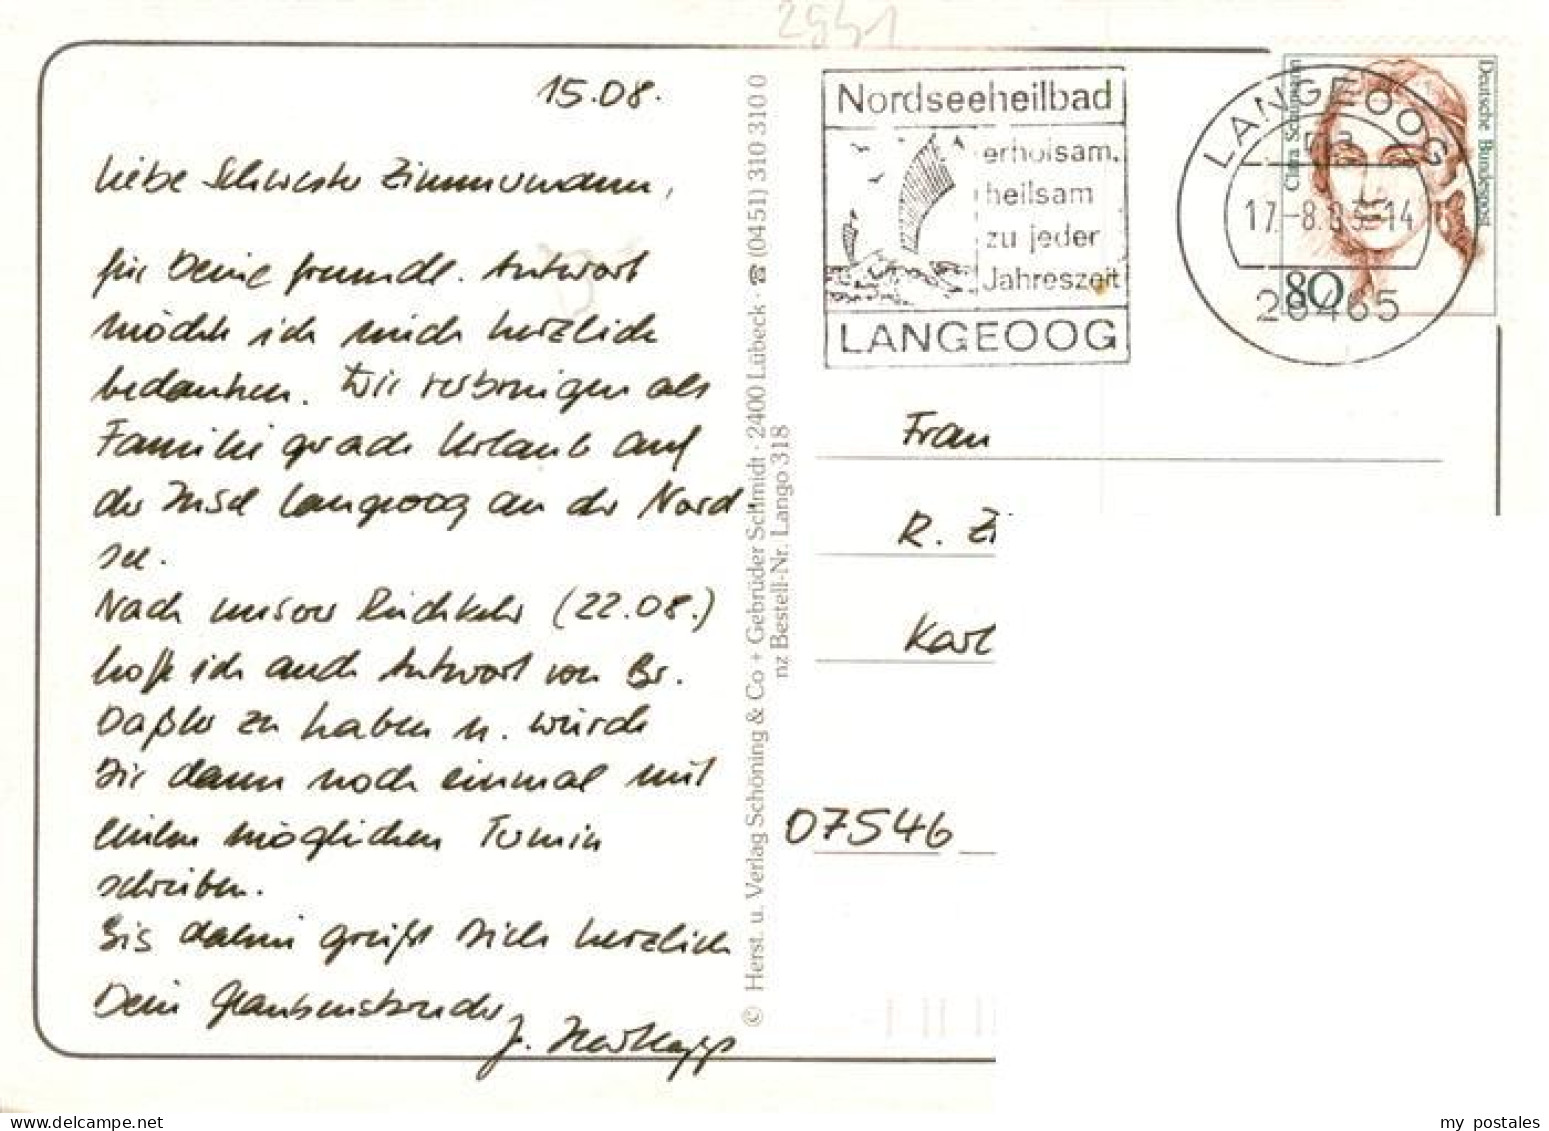 2941
15.08.
Liebe Schwester Zimmermann,
für Deine freundl. Antwort
möchte ich mich herzlich
bedanken. Wir verbringen als
Familie gerade Urlaub auf
der Insel Langeoog an der Nord
see.
Nach unserer Rückkehr (22.08.)
hoffe ich auch Antwort von Br.
Daßler zu haben u. würde
Dir dann noch einmal mit
einem möglichen Termin
schreiben.
Bis dahin grüßt Dich herzlich
Dein Glaubensbruder
© Herst. u. Verlag Schöning & Co + Gebrüder Schmidt · 2400 Lübeck · ☎ (0451) 310 310 0
nz Bestell-Nr. Lango 318
Nordseeheilbad
erholsam,
heilsam
zu jeder
Jahreszeit
LANGEOOG
LANGEOOG
17.-8.93-14
26465
Clara Schumann
Deutsche Bundespost
80
Frau
R. Zi
Karl
07546
my postales